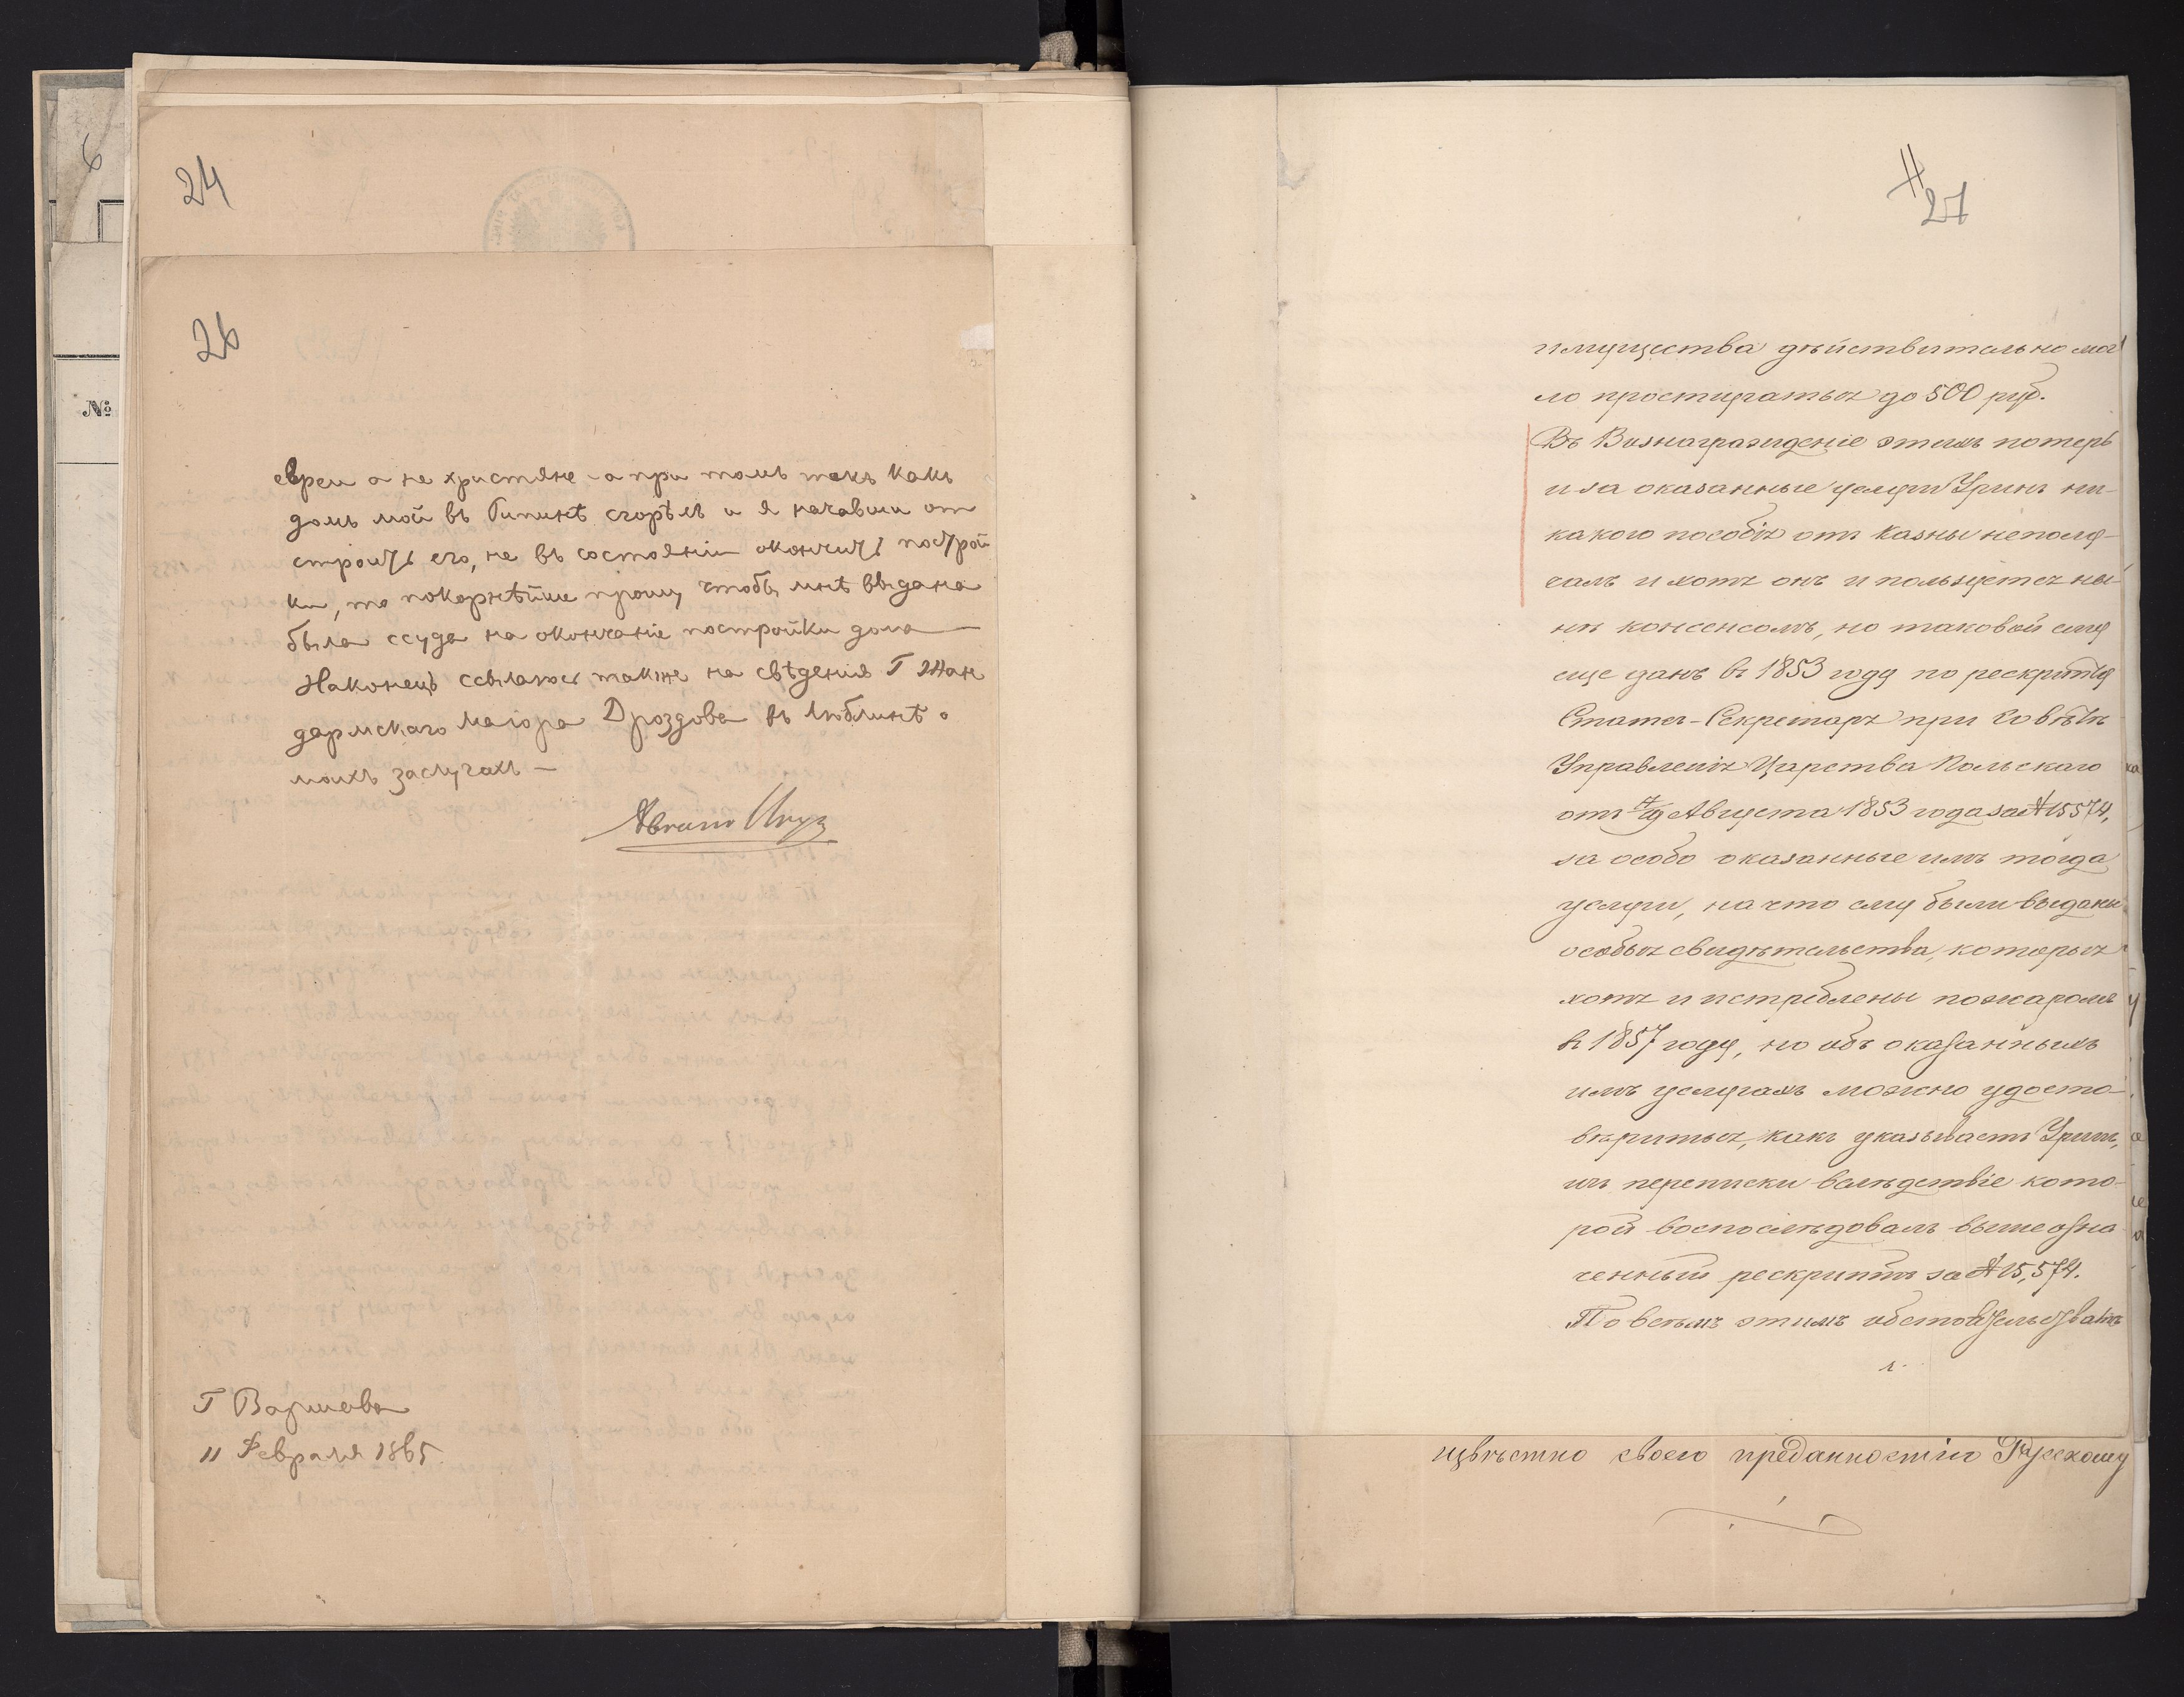 6
№
24
26
евреи а не христяне а при томъ такъ какъ
домъ мой въ Рипинѣ сгорѣлъ и я начавши от
строить его, не въ состояніи окончить построй
ки, то покорнѣйше прошу чтобы мнѣ выдана
была ссуда на окончаніе постройки дома —
Наконецъ ссылаюсь также на свѣденія Г Жан
дармскаго маіора Дроздова въ Люблинѣ о
моихъ заслугахъ —
Abram Uryn
Г Варшава
11 Февраля 1865.
27
имущества дѣйствительно мог
ло простираться до 500 руб.
Въ Вознагражденіе этихъ потерь
и за оказанные услуги Уринъ ни-
какого пособія отъ казны неполу-
чалъ и хотя онъ и пользуется ны-
нѣ консенсомъ, но таковой ему
еще данъ въ 1853 году по рескрипту
Статсъ-Секретаря при Совѣтѣ
Управленія Царства Польскаго
отъ Августа 1853 года за № 15574,
за особо оказанные имъ тогда
услуги, на что ему были выданы
особыя свидѣтельства, которыя
хотя и истреблены пожаромъ
въ 1857 году, но объ оказанныхъ
имъ услугахъ можно удосто-
вѣриться, какъ указываетъ Уринъ,
изъ переписки вслѣдствіе кото-
рой воспослѣдовалъ вышеозна
ченный рескриптъ за № 15,574.
По всѣмъ этимъ обстоятельствамъ
извѣстно своею преданностію Русскому